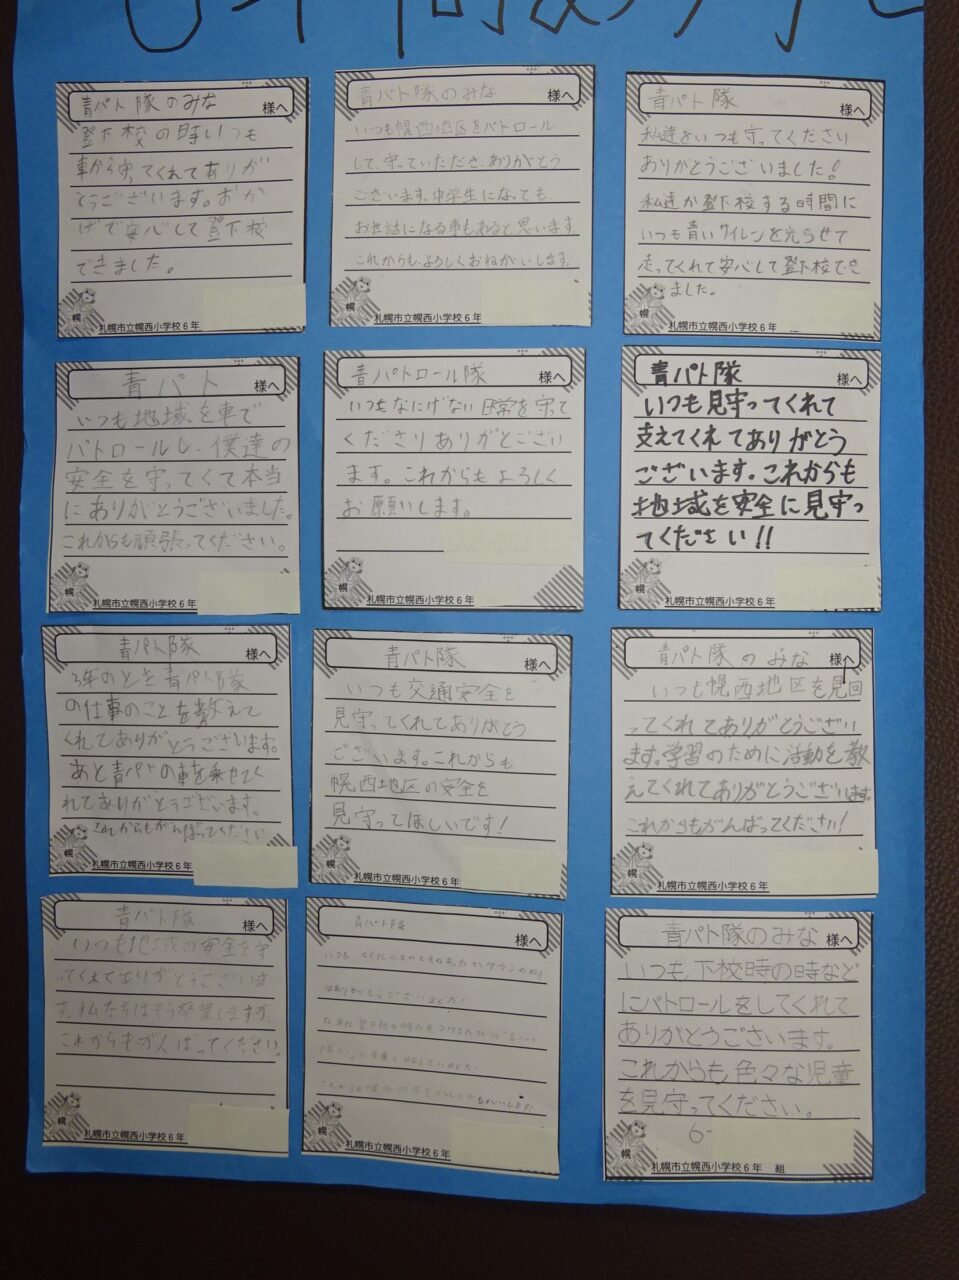 青パト隊のみな様へ
登下校の時いつも
車から守ってくれてありが
とうございます。おか
げで安心して登下校
できました。
札幌市立幌西小学校6年
青パト隊のみな様へ
いつも幌西地区をパトロール
して、守っていただき、ありがとう
ございます。中学生になっても、
お世話になる事もあると思います
これからも、よろしくおねがいします。
札幌市立幌西小学校6年
青パト隊様へ
私達をいつも守ってください
ありがとうございました!
私達が登下校する時間に
いつも青いサイレンを光らせて
走ってくれて安心して登下校でき
ました。
札幌市立幌西小学校6年
青パト様へ
いつも地域を車で
パトロールし、僕達の
安全を守ってくて本当
にありがとうございました。
これからも頑張ってください。
札幌市立幌西小学校6年
青パトロール隊様へ
いつもなにげない日常を守って
くださりありがとござい
ます。これからもよろしく
お願いします。
札幌市立幌西小学校6年
青パト隊様へ
いつも見守ってくれて
支えてくれてありがとう
ございます。これからも
地域を安全に見守っ
てください!!
札幌市立幌西小学校6年
青パト隊様へ
3年のとき青パト隊
の仕事のことを教えて
くれてありがとうございます。
あと青パトの車を乗せてく
れてありがとうございます。
これからもがんばってください
札幌市立幌西小学校6年
青パト隊様へ
いつも交通安全を
見守ってくれてありがとう
ございます。これからも
幌西地区の安全を
見守ってほしいです!
札幌市立幌西小学校6年
青パト隊のみな様へ
いつも幌西地区を見回
ってくれてありがとうござい
ます。学習のために活動を教
えてくれてありがとうございます。
これからもがんばってください!
札幌市立幌西小学校6年
青パト隊様へ
いつも地域の安全を守
ってくれてありがとうございま
す。私たちはもう卒業しますが、
これからもがんばってください。
札幌市立幌西小学校6年
青パト隊様へ
いつも
はありがとうございました!
札幌市立幌西小学校6年
青パト隊のみな様へ
いつも、下校時の時など
にパトロールをしてくれて
ありがとうございます。
これからも色々な児童
を見守ってください。
6-
札幌市立幌西小学校6年 組